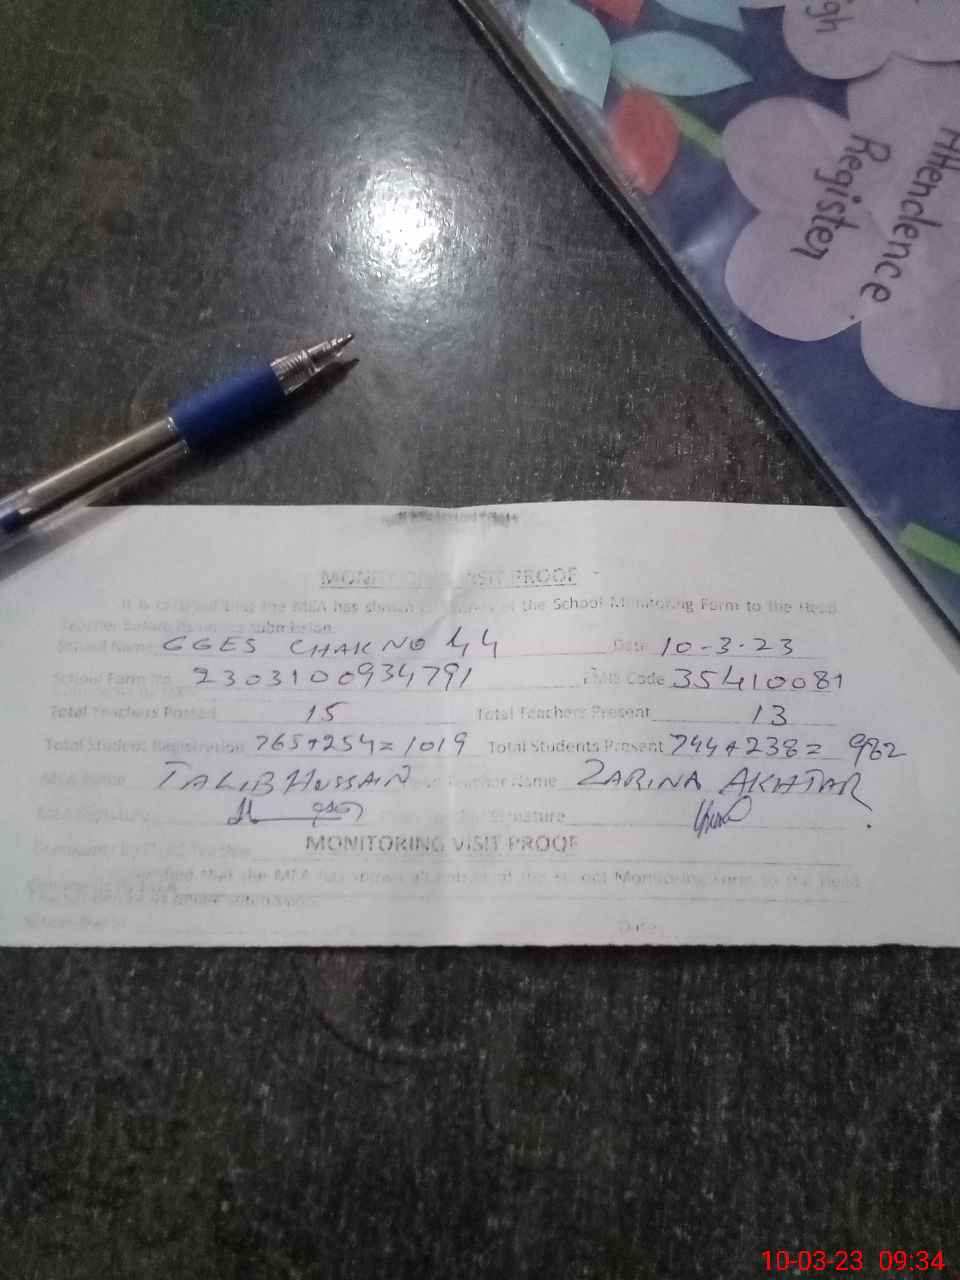 igh
Attendence
Register
MONITORING VISIT PROOF
It is certified that the MEA has shown all entries of the School Monitoring Form to the Head
Teacher before its online submission.
School Name GGES CHAK NO 44 Date 10-3-23
School Form No 2303100934791 EMIS Code 35410081
Total Teachers Posted 15 Total Teachers Present 13
Total Student Registration 765+254=1019 Total Students Present 744+238= 982
MEA Name TALIB HUSSAIN Head Teacher Name ZARINA AKHTAR
MEA Signature Head Teacher Signature
Comments by Head Teacher
MONITORING VISIT PROOF
certified that the MEA has shown all entries of the School Monitoring Form to the Head
Comments by MEA
School Name Date
10-03-23 09:34